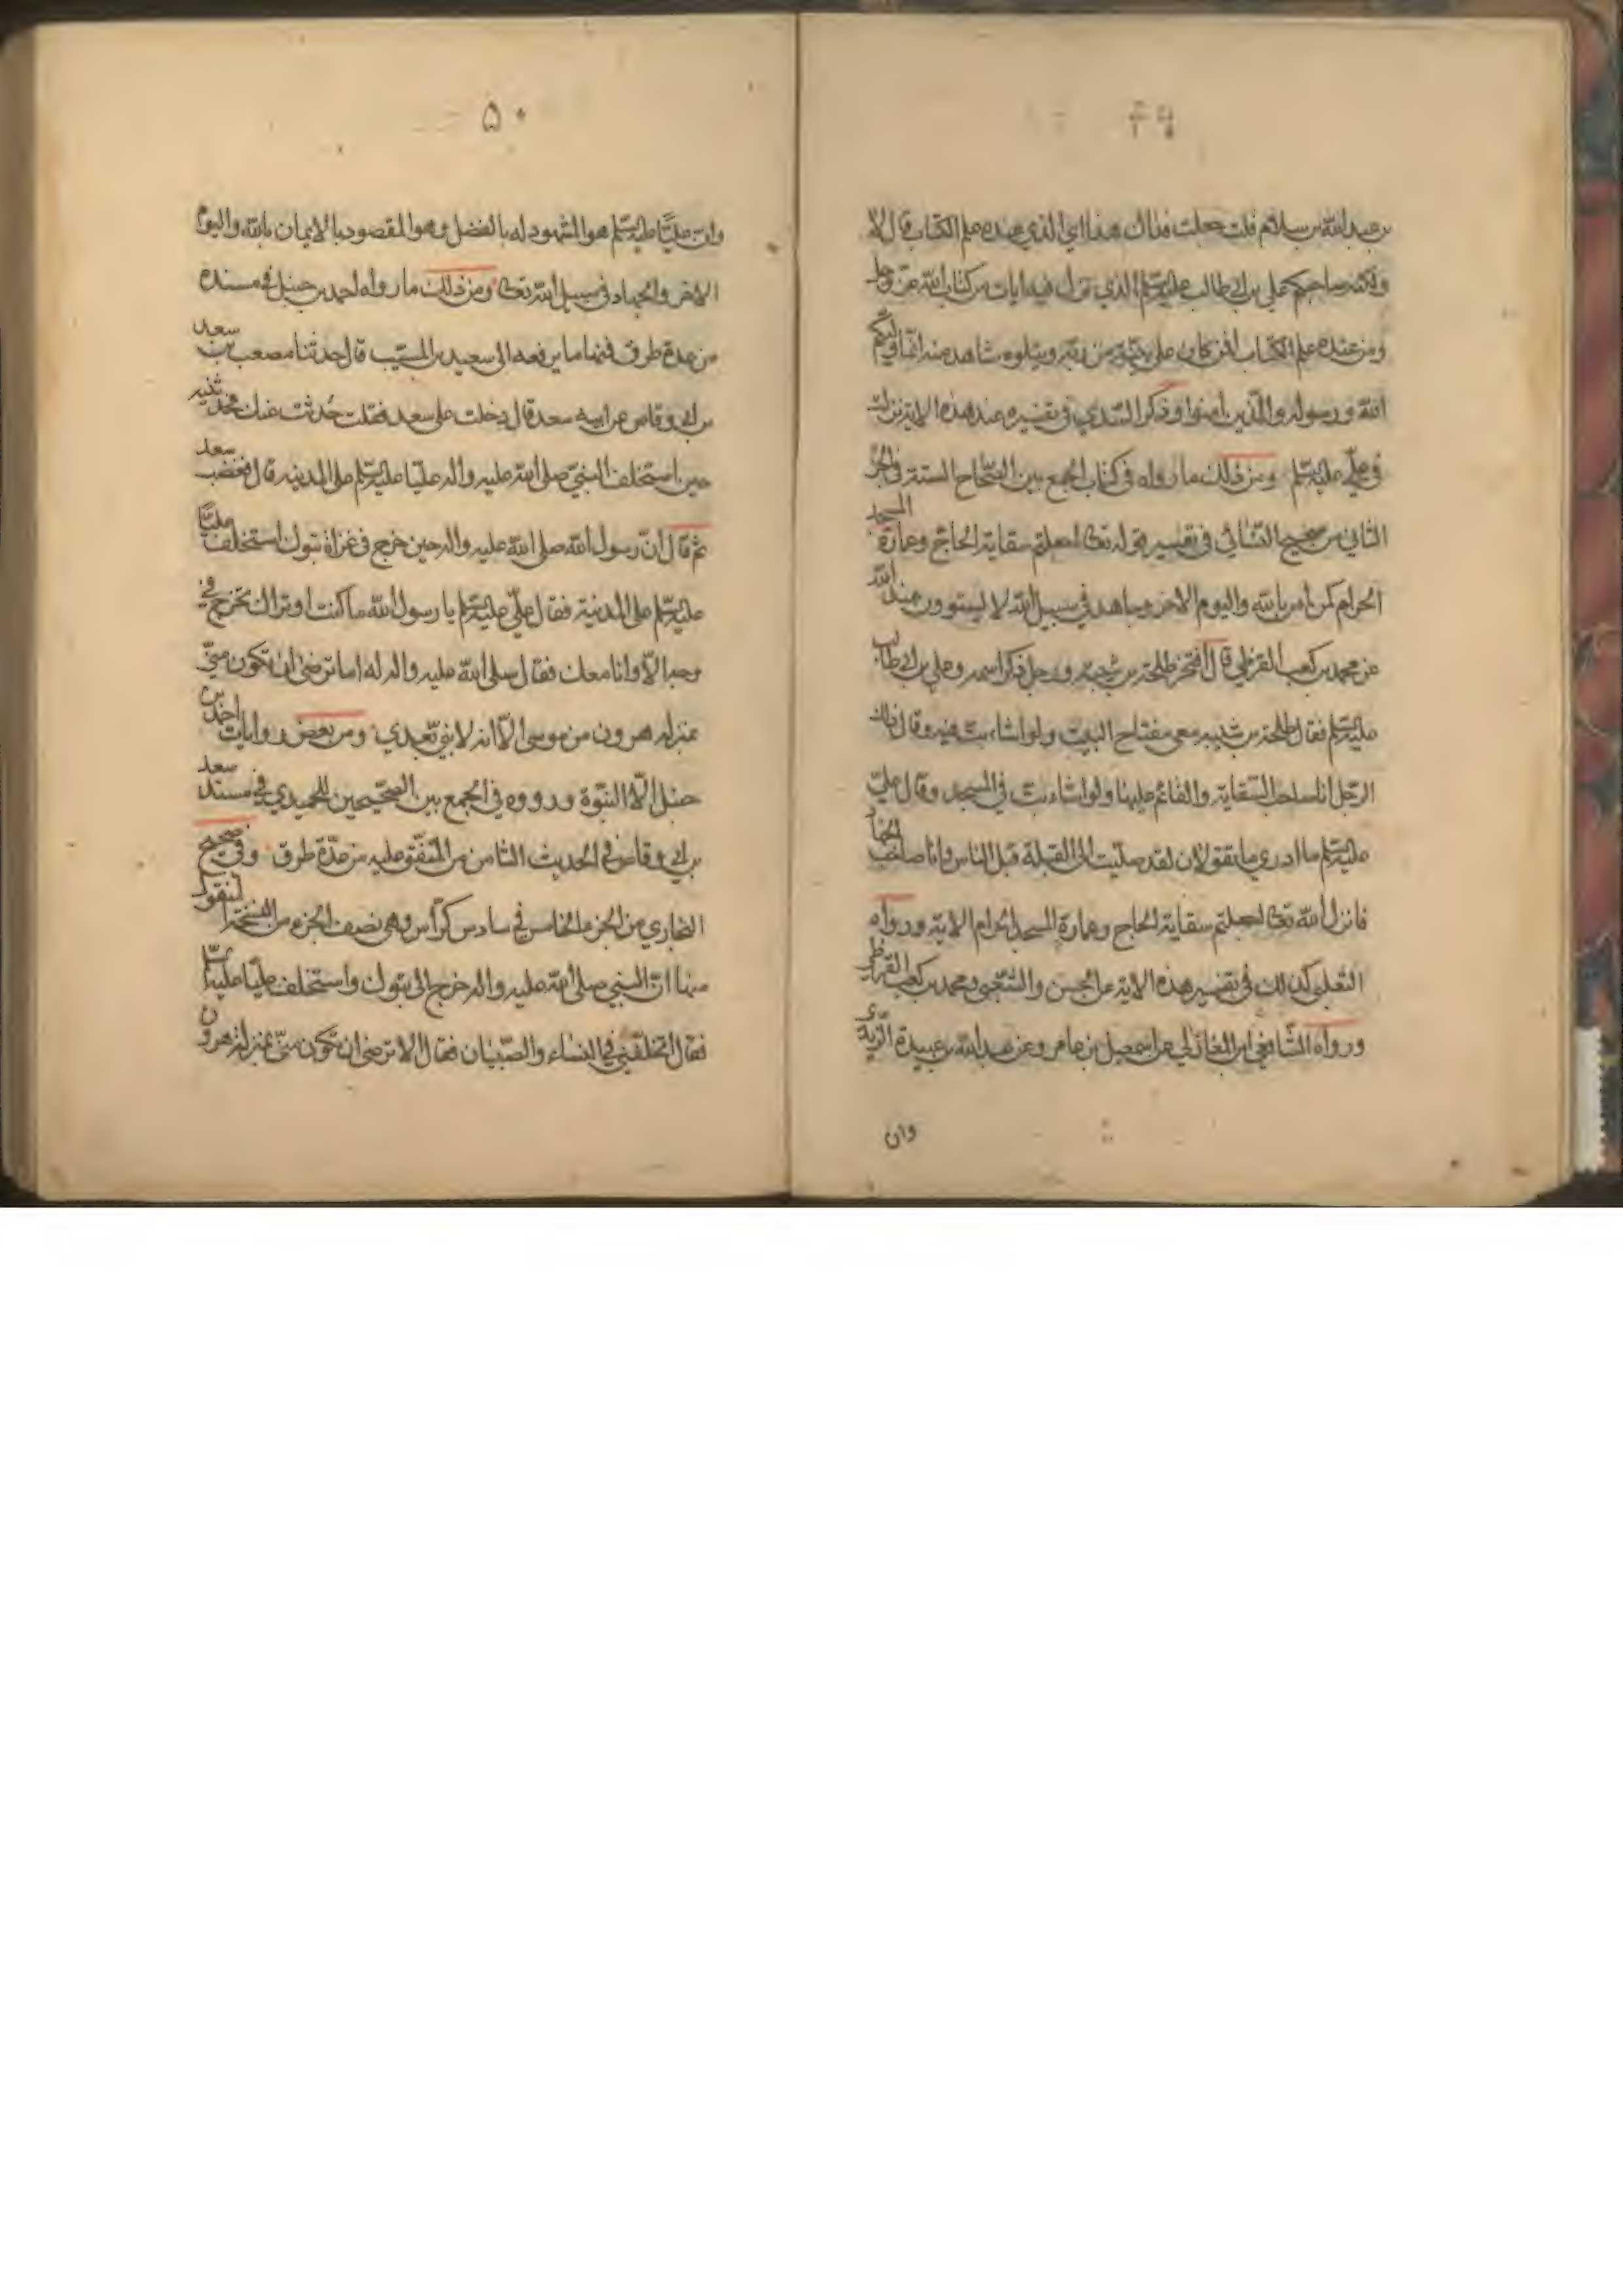 ۴۹
بن عبد الله بن سلام قلت جعلت فداك هذا ابن الذي عنده علم الكتاب قال لا
ولكنه صاحبكم علي بن ابي طالب عليه السلم الذي نزل فيه ايات من كتاب الله عز وجل
ومن عنده علم الكتاب افمن كان على بينة من ربه ويتلوه شاهد منه انما وليكم
الله ورسوله والذين امنوا وذكر السدي في تفسيره عند هذه الاية نزلت
في علي عليه السلم ومن ذلك ما رواه في كتاب الجمع بين الصحاح الستة في الجزء
الثاني من صحيح النسائي في تفسير قوله تعالى اجعلتم سقاية الحاج وعمارة المسجد
الحرام كمن امن بالله واليوم الاخر وجاهد في سبيل الله لا يستوون عند الله
عن محمد بن كعب القرظي قال افتخر طلحة بن شيبة ورجل ذكر اسمه وعلي بن ابي طالب
عليه السلم فقال طلحة بن شيبه معي مفتاح البيت ولو اشاء بت فيه وقال ذلك
الرجل انا صاحب السقاية والقائم عليها ولو اشاء بت في المسجد وقال علي
عليه السلم ما ادري ما تقولان لقد صليت الى القبلة قبل الناس وانا صاحب الجهاد
فانزل الله تعالى اجعلتم سقاية الحاج وعمارة المسجد الحرام الاية ورواه
الثعلبي كذلك في تفسير هذه الاية عن الحسن والشعبي ومحمد بن كعب القرظي
ورواه الشافعي ابن المغازلي عن اسمعيل بن عامر وعن عبد الله بن عبيدة الربذي
وان
۵۰
وان عليا عليه السلم هو المشهود له بالفضل وهو المقصود بالايمان بالله واليوم
الاخر والجهاد في سبيل الله تعالى ومن ذلك ما رواه احمد بن حنبل في مسنده
من عدة طرق فمنها ما يرفعه الى سعيد بن المسيب قال حدثنا مصعب بن سعد
بن ابي وقاص عن ابيه سعد قال دخلت على سعد فقلت حدثت عنك
حين استخلف النبي صلى الله عليه واله عليا عليه السلم على المدينه قال فغضب سعد
ثم قال ان رسول الله صلى الله عليه واله حين خرج في غزاة تبوك استخلف عليا
عليه السلم على المدينة فقال علي عليه السلم يا رسول الله ما كنت اوتراك تخرج في
وجه الا وانا معك فقال صلى الله عليه واله له اما ترضى ان تكون مني
بمنزله هرون من موسى الا انه لا نبي بعدي ومن بعض روايات احمد بن
حنبل الا النبوة ورووه في الجمع بين الصحيحين للحميدي في مسند سعد
بن ابي وقاص في الحديث الثامن من المتفق عليه من عدة طرق وفي صحيح
البخاري من الجزء الخامس في سادس كراس وهي نصف الجزء من النسخة المنقول
منها ان النبي صلى الله عليه واله خرج الى تبوك واستخلف عليا عليه السلم
فقال اتخلفني في النساء والصبيان فقال الا ترضى ان تكون مني بمنزلة هرون